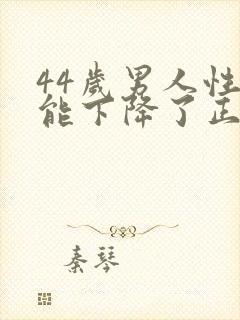 44歲男人性
能下降了正
秦琴